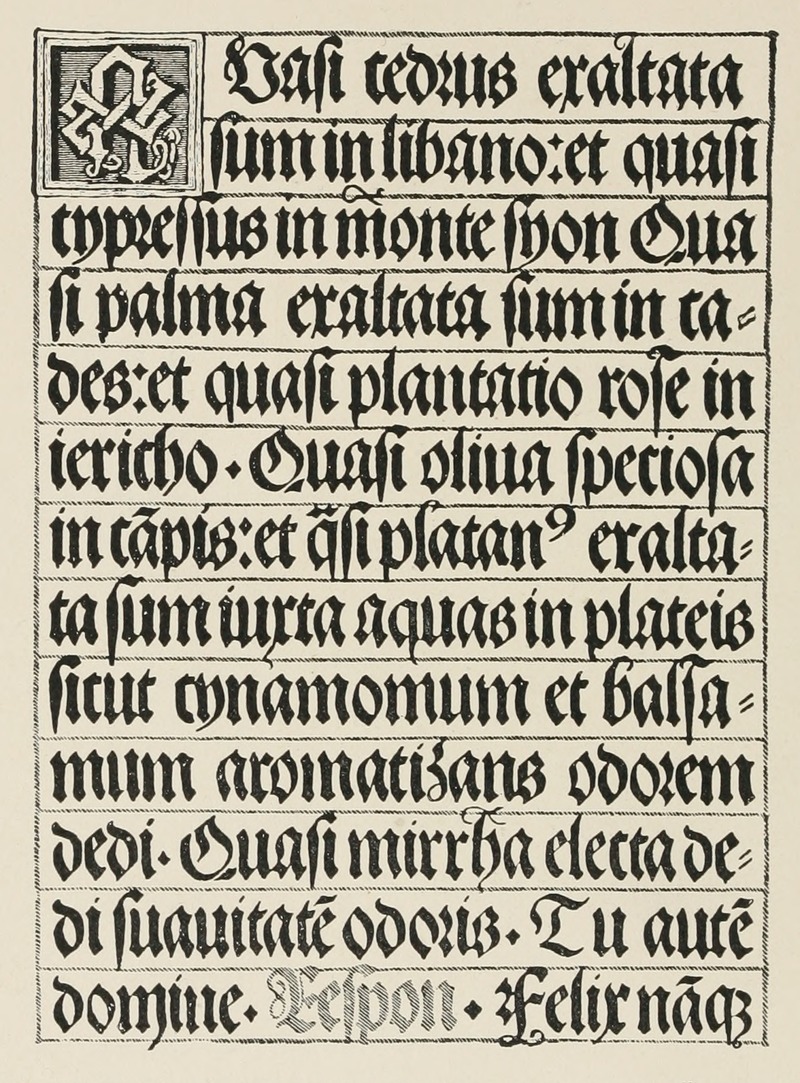 QVasi cedrus exaltata
sum in libano:et quasi
cypressus in monte syon Qua
si palma exaltata sum in ca=
des:et quasi plantatio rose in
iericho · Quasi oliua speciosa
in cāpis:et q̄si platanꝰ exalta=
ta sum iuxta aquas in plateis
sicut cynamomum et balsa=
mum aromatizans odorem
dedi · Quasi mirrha electa de=
di suauitatē odoris · Tu autē
domine · Respon · Felix nāqꝫ